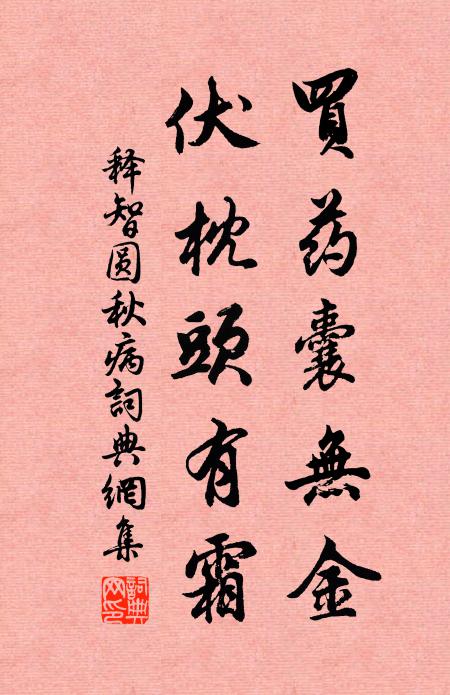 買药囊無金
伏枕頭有霜
释智圆秋病詞典網集
詞典网印